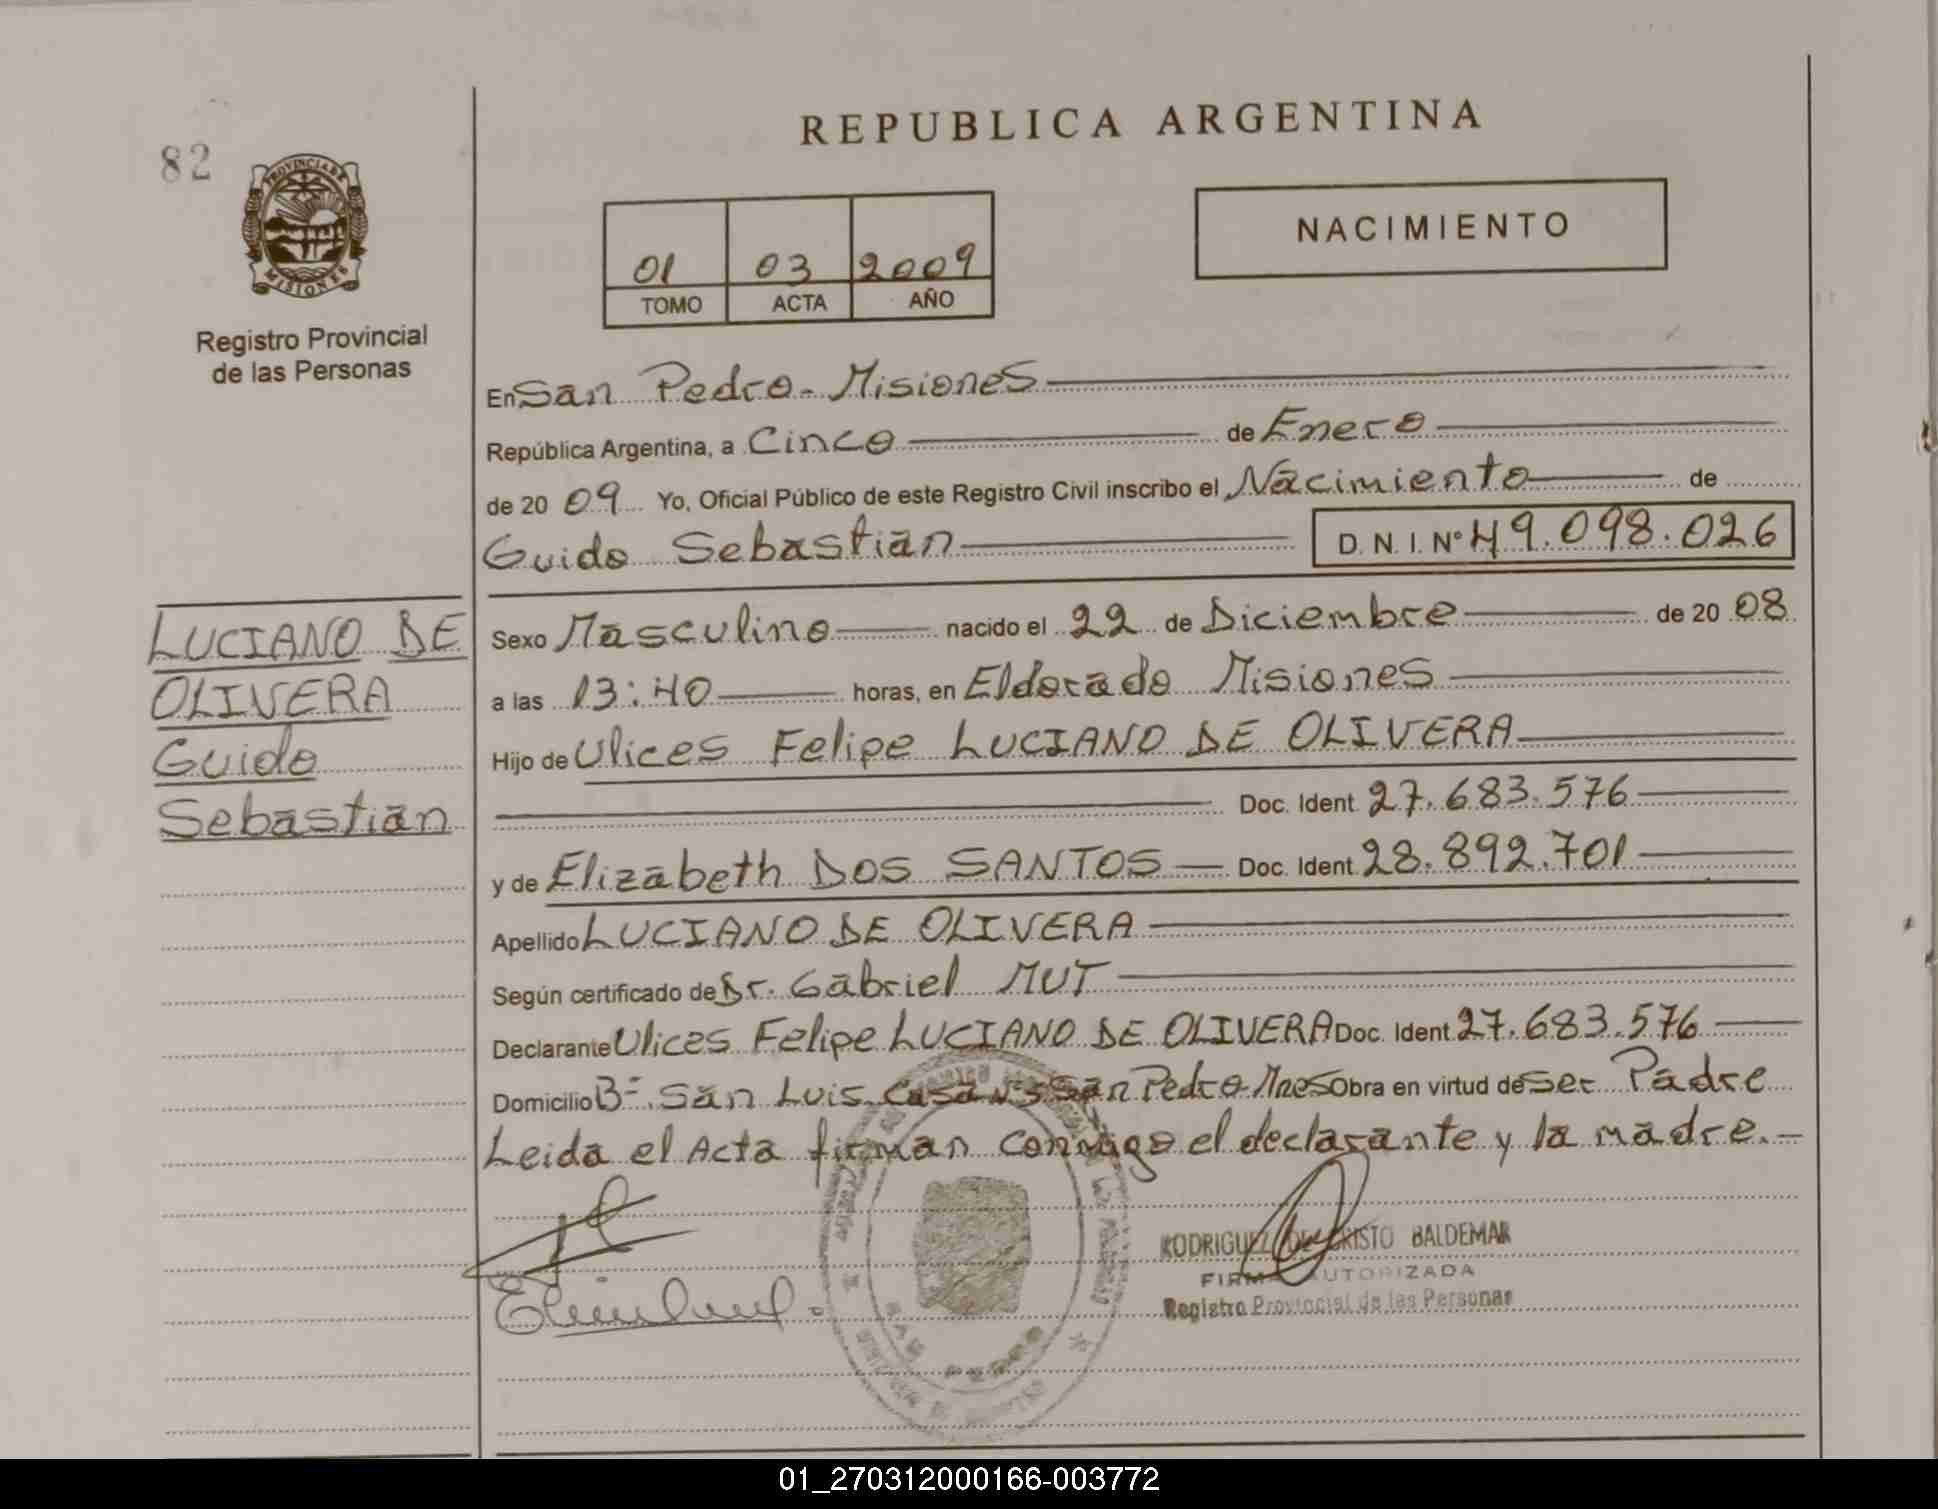 REPUBLICA ARGENTINA
82
PROVINCIA DE
MISIONES
Registro Provincial
de las Personas
01 03 2009
TOMO ACTA AÑO
NACIMIENTO
En San Pedro - Misiones
República Argentina, a Cinco de Enero
de 20 09 Yo, Oficial Público de este Registro Civil inscribo el Nacimiento de
Guido Sebastián D. N. I. N° 49.098.026
LUCIANO DE
OLIVERA
Guido
Sebastián
Sexo Masculino nacido el 22 de Diciembre de 20 08
a las 13:40 horas, en Eldorado Misiones
Hijo de Ulices Felipe LUCIANO DE OLIVERA
Doc. Ident 27.683.576
y de Elizabeth DOS SANTOS Doc. Ident 28.892.701
Apellido LUCIANO DE OLIVERA
Según certificado de Dr. Gabriel MUT
Declarante Ulices Felipe LUCIANO DE OLIVERA Doc. Ident 27.683.576
Domicilio B= San Luis Casa N°5 San Pedro Mnes Obra en virtud de Ser Padre
Leida el Acta firman conmigo el declarante y la madre.-
RODRIGUEZ DE CRISTO BALDEMAR
FIRMA AUTORIZADA
Registro Provincial de las Personas
SAN PEDRO
01_270312000166-003772